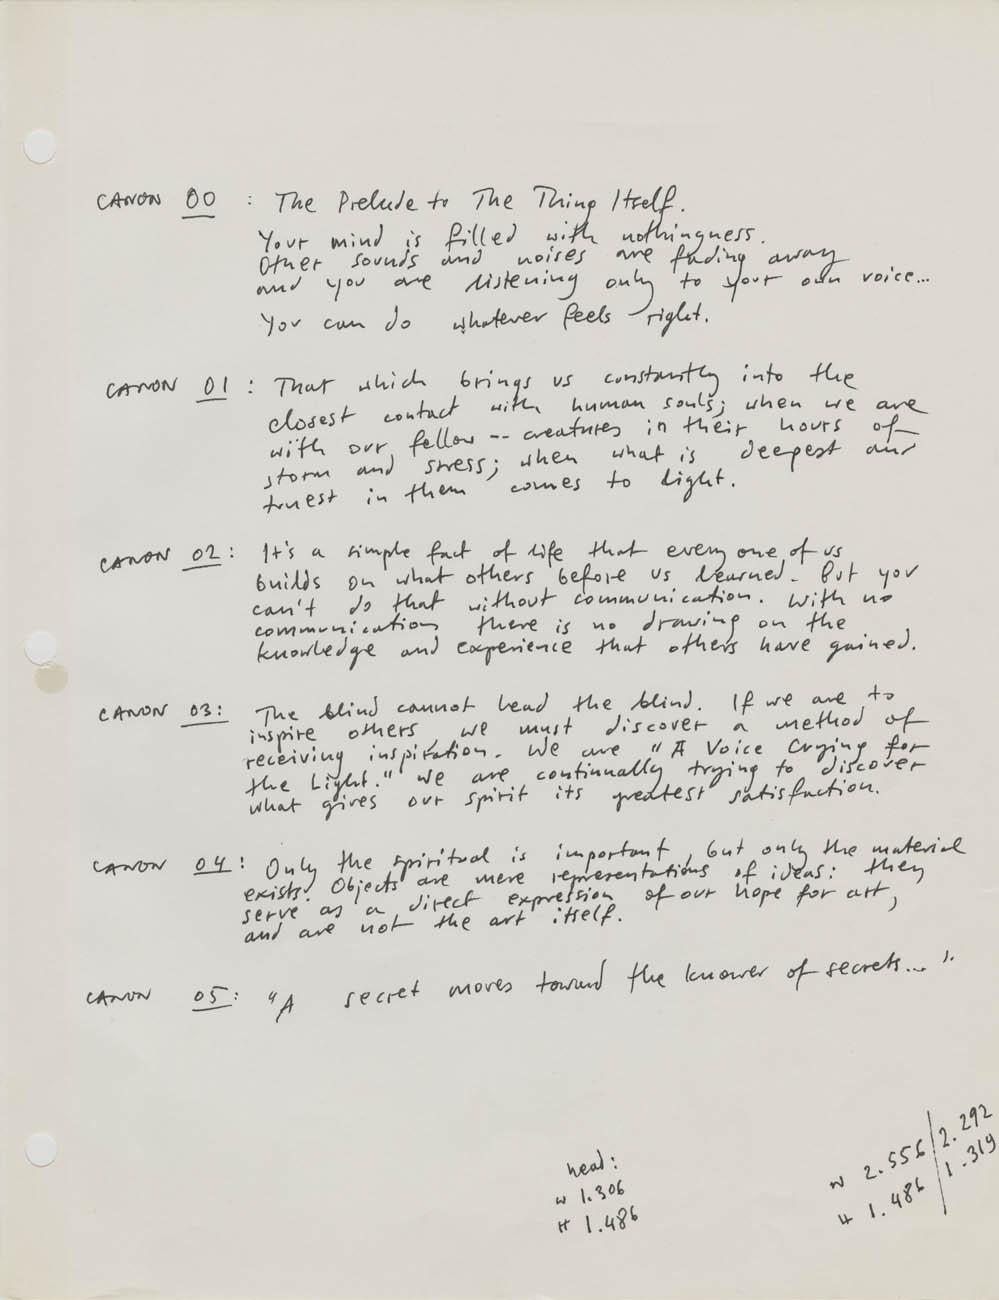 CANON 00 : The Prelude to The Thing Itself.
Your mind is filled with nothingness.
Other sounds and noises are fading away
and you are listening only to your own voice...
You can do whatever feels right.
CANON 01 : That which brings us constantly into the
closest contact with human souls; when we are
with our fellow -- creatures in their hours of
storm and stress; when what is deepest and
truest in them comes to light.
CANON 02 : It's a simple fact of life that every one of us
builds on what others before us learned. But you
can't do that without communication. With no
communication there is no drawing on the
knowledge and experience that others have gained.
CANON 03 : The blind cannot lead the blind. If we are to
inspire others, we must discover a method of
receiving inspiration. We are "A Voice Crying for
the Light." We are continually trying to discover
what gives our spirit its greatest satisfaction.
CANON 04 : Only the spiritual is important, but only the material
exists. Objects are mere representations of ideas: they
serve as a direct expression of our hope for art,
and are not the art itself.
CANON 05 : "A secret moves toward the knower of secrets..."
head:
W 1.306
H 1.486
W 2.556 | 2.292
H 1.486 | 1.319